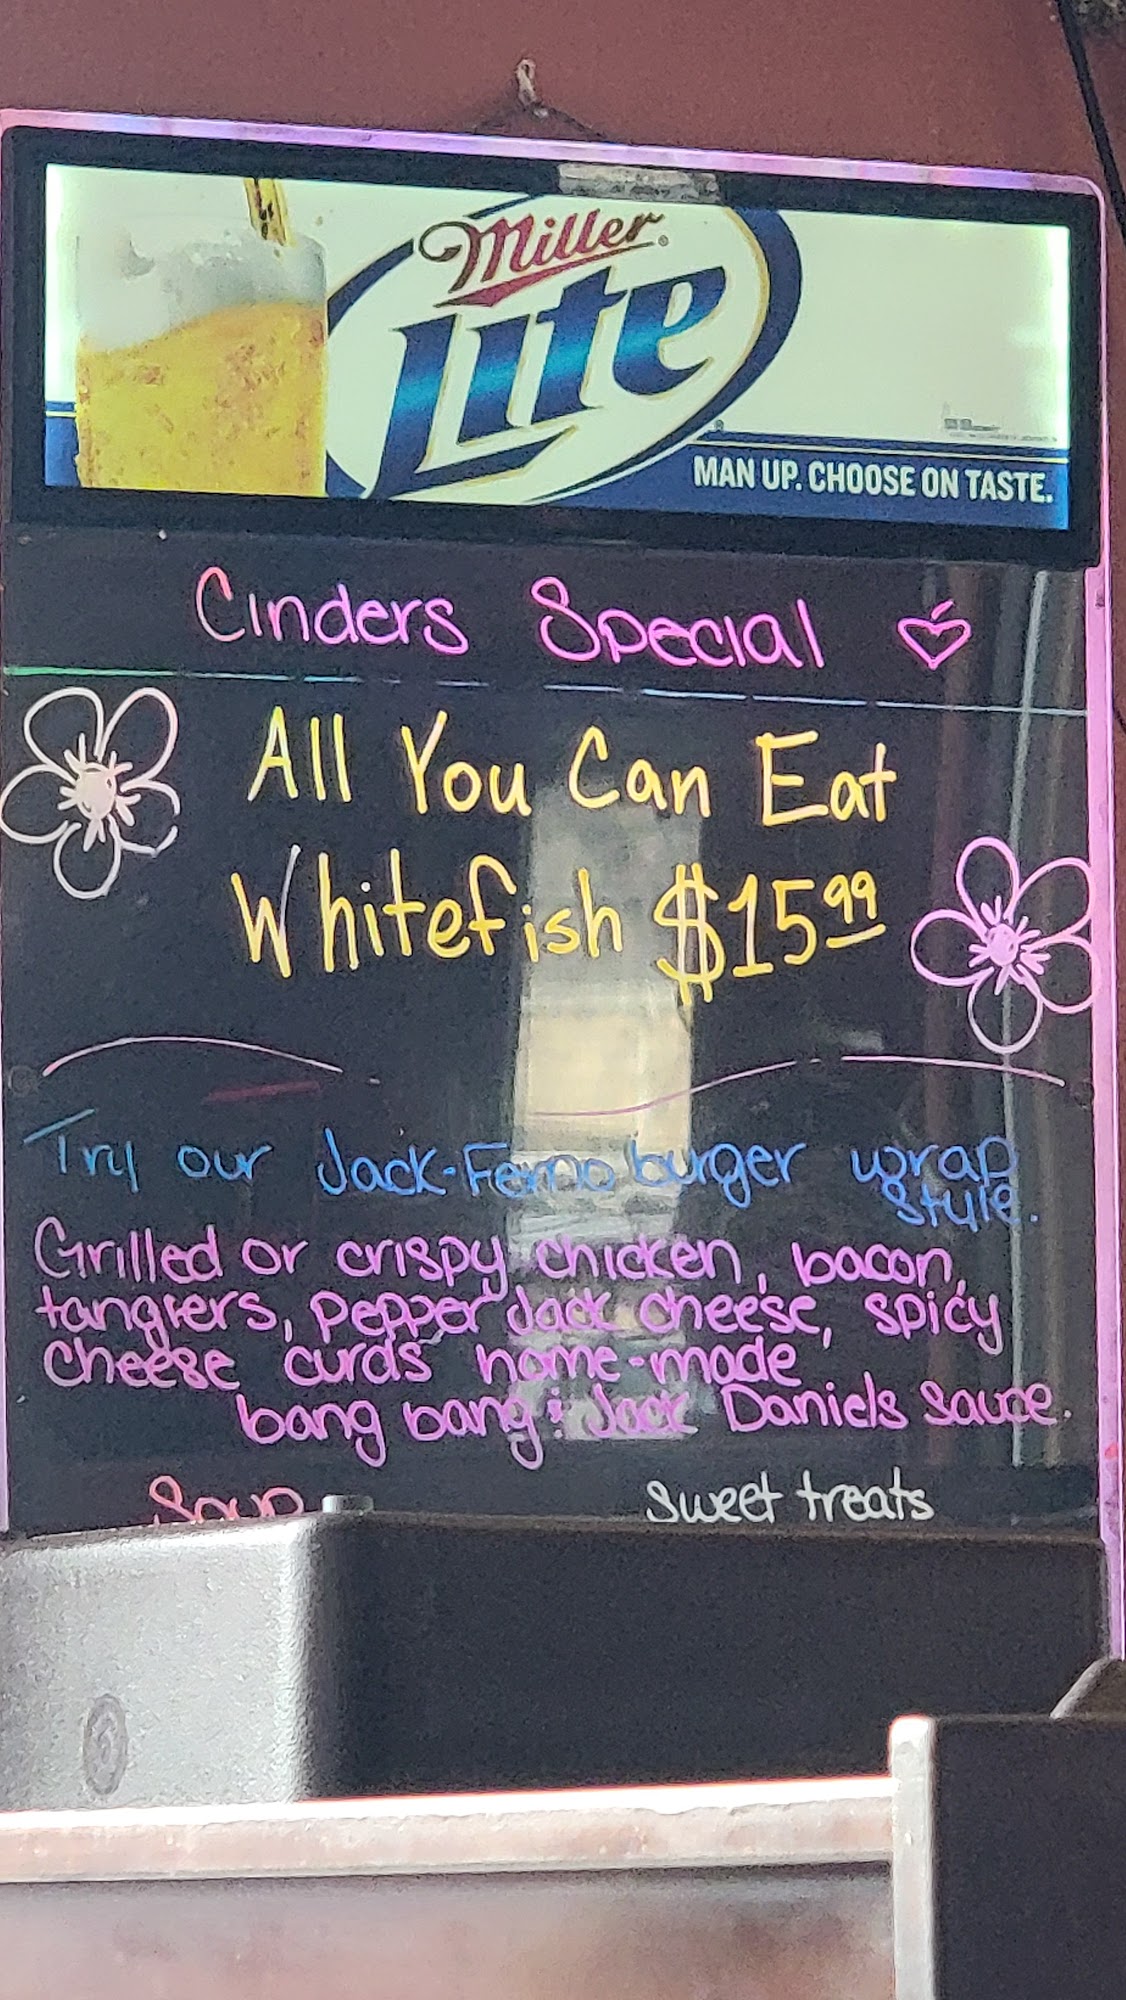 Miller
Lite
MAN UP. CHOOSE ON TASTE.
Cinders Special
All You Can Eat
Whitefish $15.99
Try our Jack-Ferno burger wrap
style.
Grilled or crispy chicken, bacon,
tangiers, pepper Jack cheese, spicy
cheese curds home-made
bang bang & Jack Daniels sauce.
Soup
Sweet treats